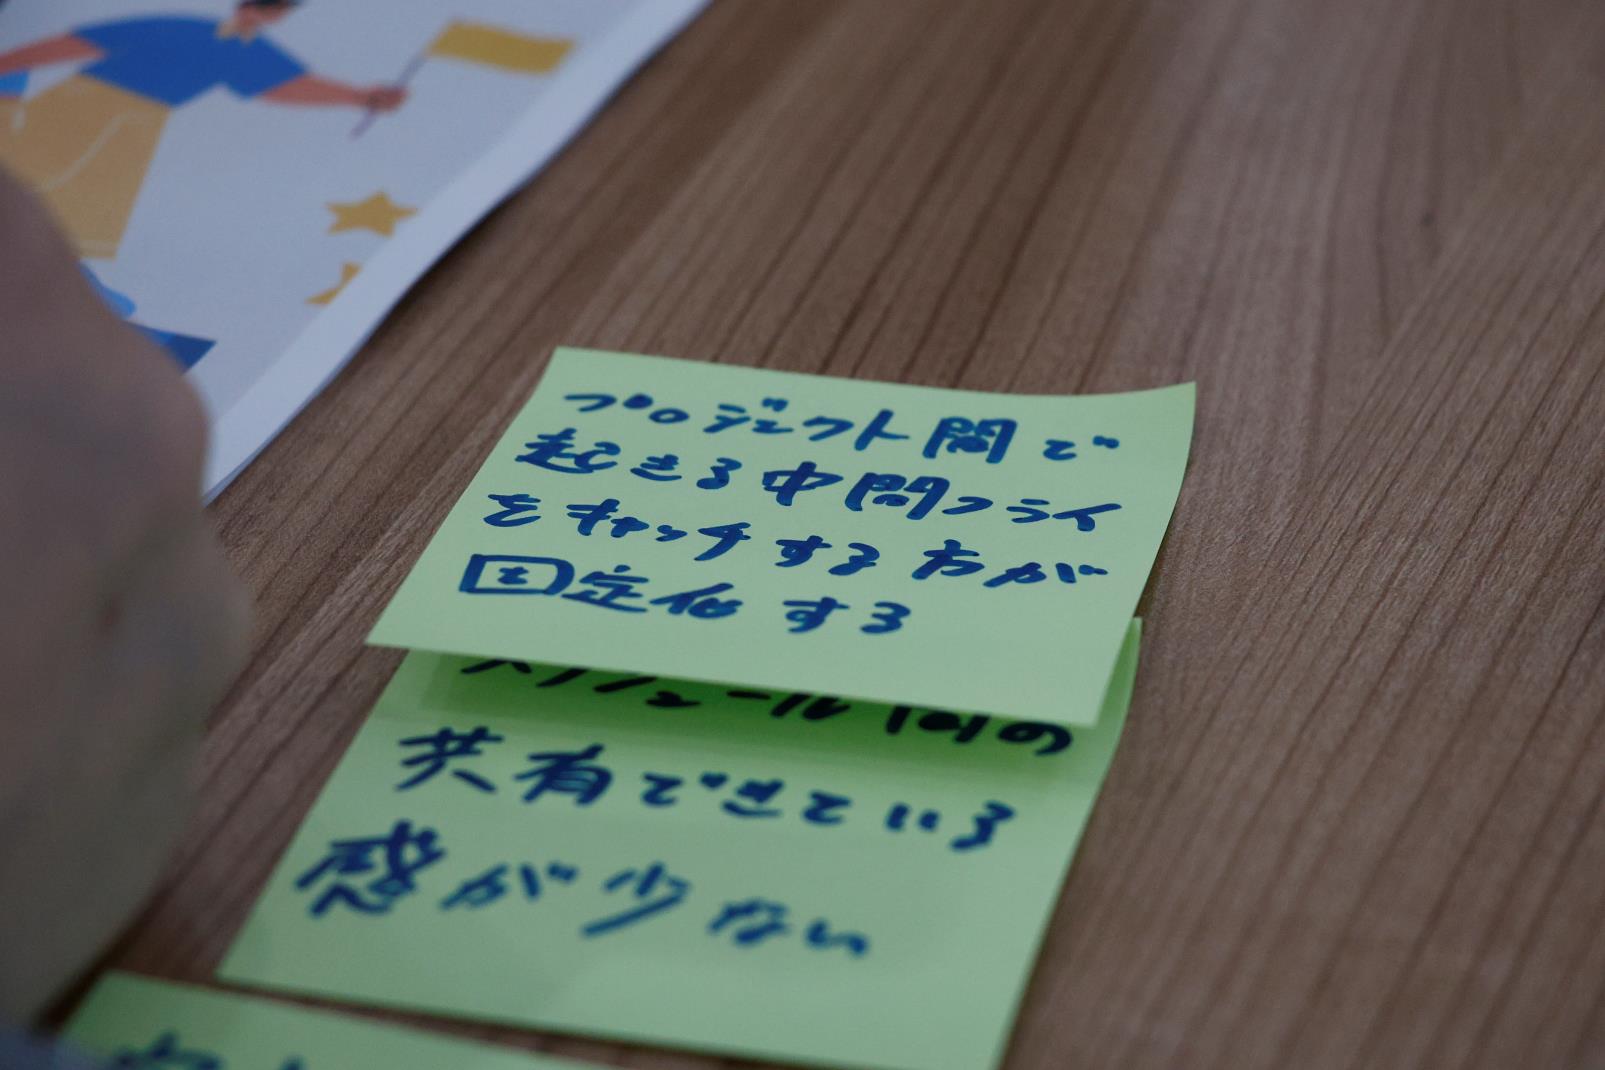 プロジェクト間で
起きる中間フライ
をキャッチする方が
固定化する
スケジュール間の
共有できている
感が少ない